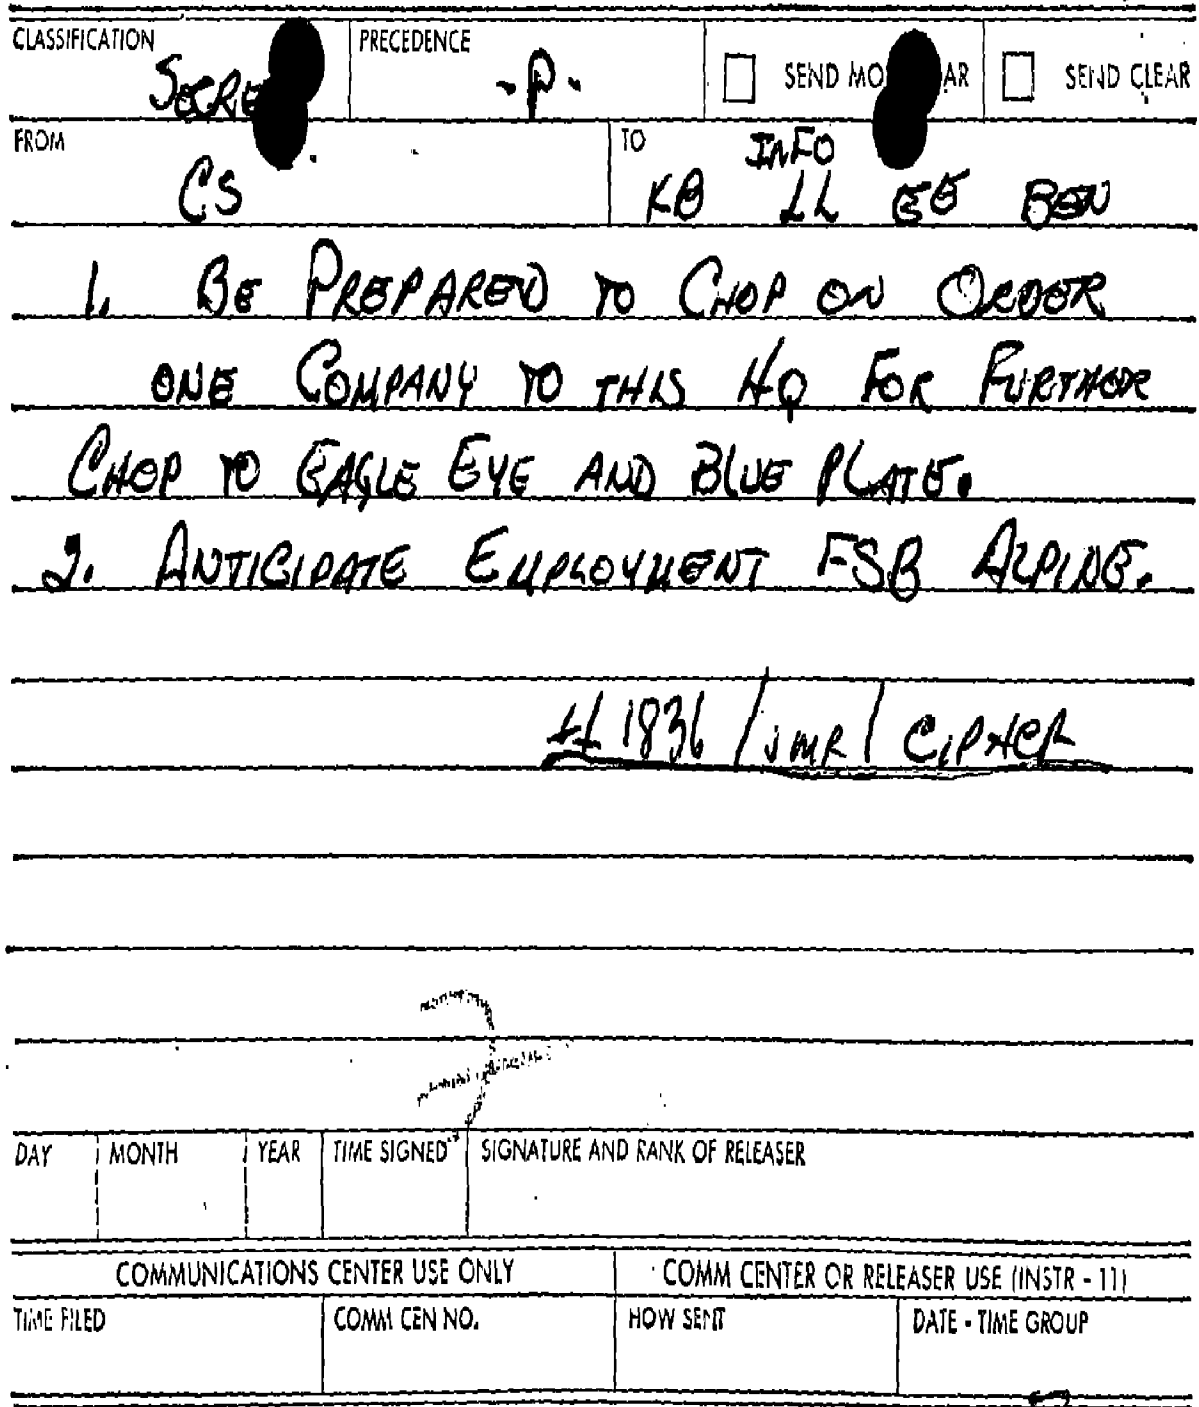 CLASSIFICATION PRECEDENCE
SECRE -P- SEND MO AR SEND CLEAR
FROM TO INFO
CS KB LL EE BEN
1. BE PREPARED TO CHOP ON ORDER
ONE COMPANY TO THIS HQ FOR FURTHER
CHOP TO EAGLE EYE AND BLUE PLATE.
2. ANTICIPATE EMPLOYMENT FSB ALPINE.
1836 / JMR / CIPHER
DAY MONTH YEAR TIME SIGNED SIGNATURE AND RANK OF RELEASER
COMMUNICATIONS CENTER USE ONLY COMM CENTER OR RELEASER USE (INSTR - 11)
TIME FILED COMM CEN NO. HOW SENT DATE - TIME GROUP